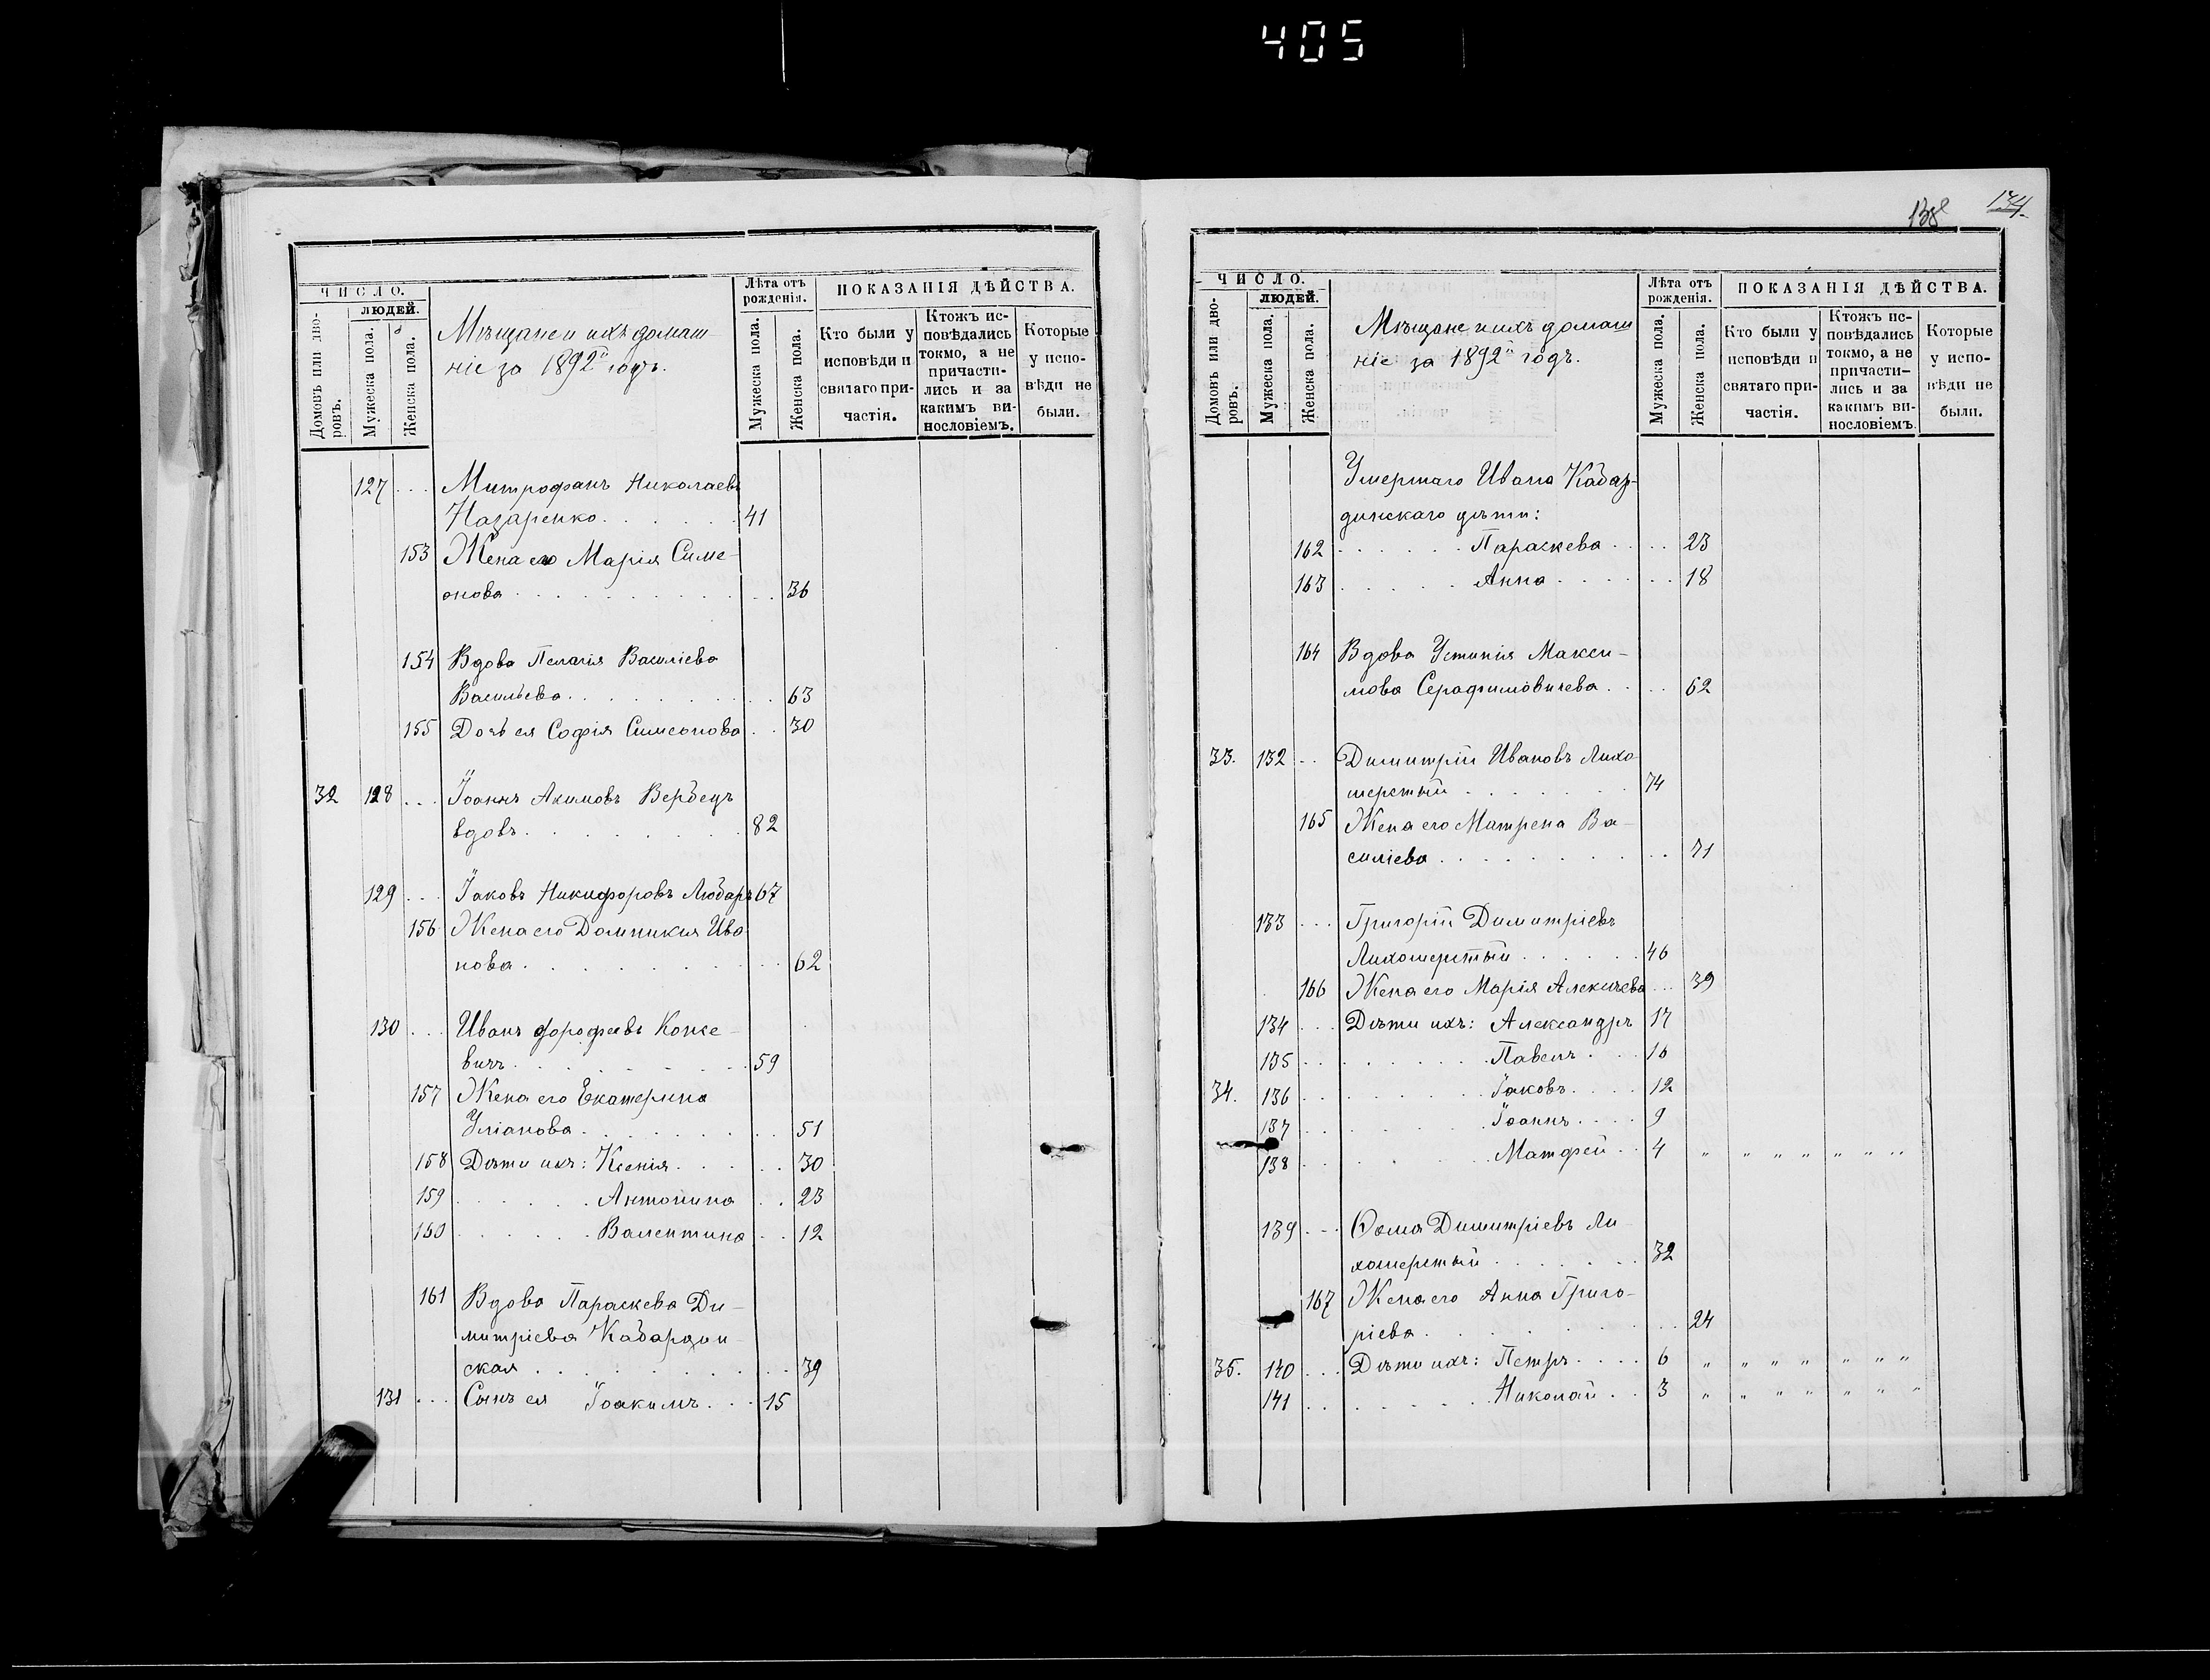 405
ЧИСЛО.
людей.
Домовъ или дво-
ровъ.
Мужеска пола.
Женска пола.
Мѣщане и ихъ домаш-
ніе за 1892й годъ.
Лѣта отъ
рожденія.
Мужеска пола.
Женска пола.
ПОКАЗАНІЯ ДѢЙСТВА.
Кто были у
исповѣди и
святаго при-
частія.
Ктожъ ис-
повѣдались
токмо, а не
причасти-
лись и за
какимъ ви-
нословіемъ.
Которые
у испо-
вѣди не
были.
127 . . . Митрофанъ Николаевъ
Назаренко . . . . . . 41
153 Жена его Марія Симе-
онова . . . . . . . . . . . 36
154 Вдова Пелагія Василіева
Васильева . . . . . . . . 63
155 Дочь ея Софія Симеонова . . 30
32 128 . . . Іоаннъ Акимовъ Вербецъ
вдовъ . . . . . . . . 82
129 . . . Іаковъ Никифоровъ Любаръ 67
156 Жена его Домникия Ива-
нова . . . . . . . . . . 62
130 . . . Иванъ Дорофеевъ Конке-
вичъ . . . . . . . . 59
157 Жена его Екатерина
Уліанова . . . . . . . . 51
158 Дѣти ихъ: Ксенія . . . . . 30
159 . . . . . . Антонина . . 23
160 . . . . . . Валентина . . 12
161 Вдова Параскева Ди-
митріева Кабардин-
ская . . . . . . . . . . 39
131 . . . Сынъ ея Іоакимъ . . . 15
138
134.
ЧИСЛО.
людей.
Домовъ или дво-
ровъ.
Мужеска пола.
Женска пола.
Мѣщане и ихъ домаш
ніе за 1892й годъ.
Лѣта отъ
рожденія.
Мужеска пола.
Женска пола.
ПОКАЗАНІЯ ДѢЙСТВА.
Кто были у
исповѣди и
святаго при-
частія.
Ктожъ ис-
повѣдались
токмо, а не
причасти-
лись и за
какимъ ви-
нословіемъ.
Которые
у испо-
вѣди не
были.
Умершаго Ивана Кабар-
динскаго дѣти:
162 . . . . . . Параскева . . . . 23
163 . . . . . Анна . . . . . . 18
164 Вдова Устинія Макси-
мова Серафимовичева . . . . 62
33. 132 . . Димитрій Ивановъ Лихо
шерстый . . . . . . . 74
165 Жена его Матрена Ва-
силіева . . . . . . . . . . 71
133 . . . Григорій Димитріевъ
Лихошерстый . . . . . . 46
166 Жена его Марія Алексіева . . . 39
134 . . . Дѣти ихъ: Александръ 17
135 . . . . . . . . Павелъ . . . 16
34. 136 . . . . . . . . Іаковъ . . . . 12
137 . . . . . . . . Іоаннъ . . . . 9
138 . . . . . . . . Матфей . . 4 " " " " " " "
139 . . . Ѳома Димитріевъ Ли-
хошерстый . . . . . . . 32
167 Жена его Анна Григо-
ріева . . . . . . . . . . 24
35. 140 . . . Дѣти ихъ: Петръ . . . . 6 " " " " " " "
141 . . . . . . . . Николай . . 3 " " " " " " "